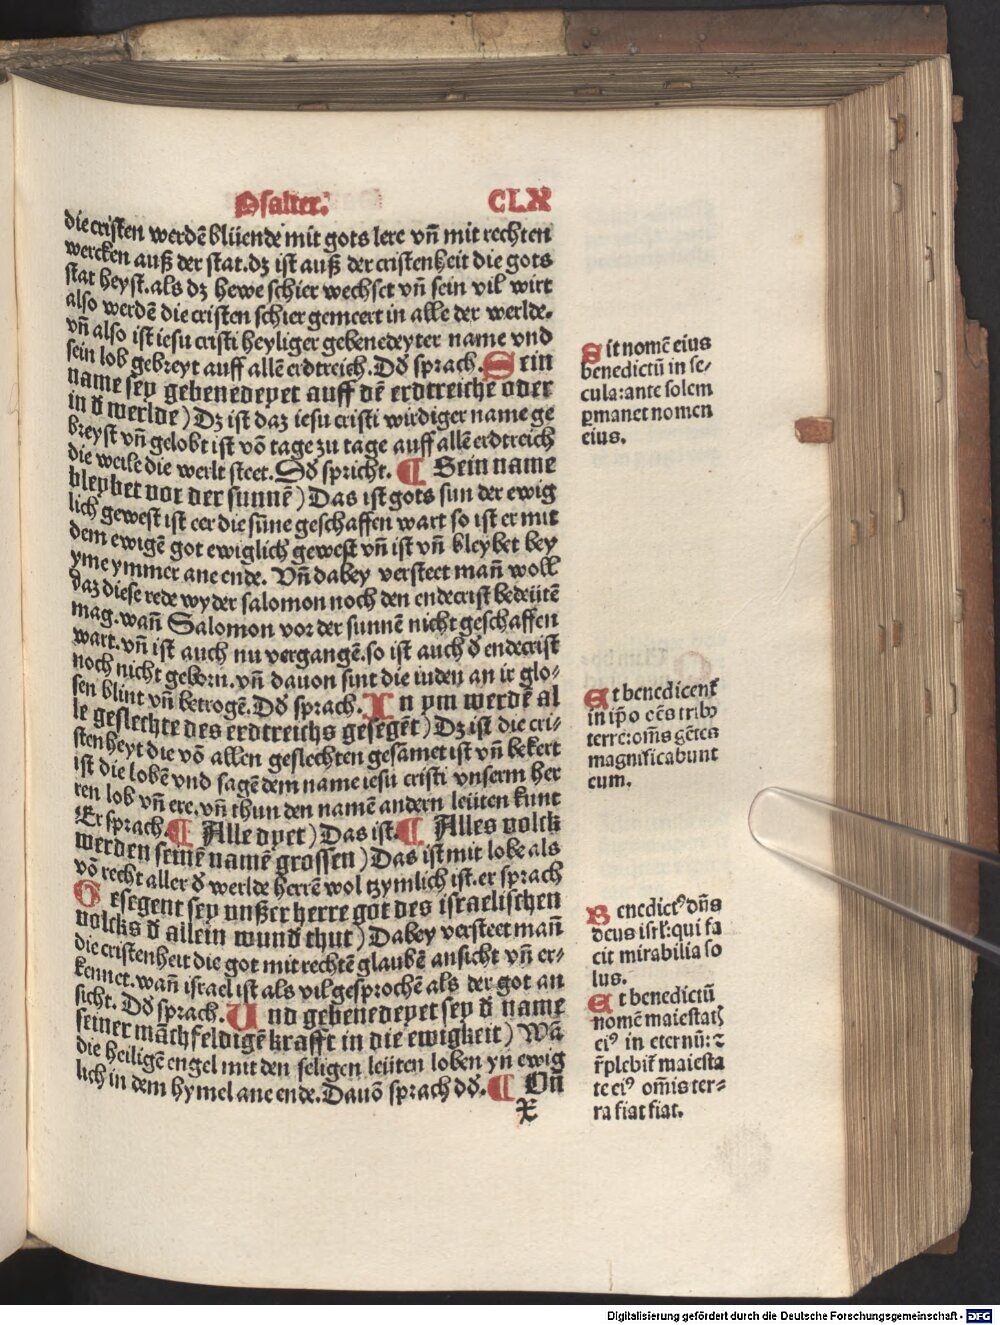 Psalter. CLX
die cristen werdē blüende mit gots lere vñ mit rechten
wercken auß der stat.dz ist auß der cristenheit die gots
stat heyst.als dz hewe schier wechset vñ sein vil wirt
also werdē die cristen schier gemeert in alle der werlde.
vñ also ist iesu cristi heyliger gebenedeyter name vnd
sein lob gebreyt auff allē erdtreich.Dđ sprach. Sein
name sey gebenedeyet auff dē erdtreiche oder
in đ werlde) Dz ist daz iesu cristi wirdiger name ge
breyst vñ gelobt ist vō tage zu tage auff allē erdtreich
die weile die werlt steet. Dđ spricht. ¶ Sein name
bleybet vor der sunnē) Das ist gots sun der ewig
lich gewest ist eer die sūne geschaffen wart so ist er mit
dem ewigē got ewiglich gewest vñ ist vñ bleybet bey
yme ymmer ane ende. Vñ dabey versteet mañ woll
daz diese rede wyder salomon noch den endecrist bedeütē
mag.wañ Salomon vor der sunnē nicht geschaffen
wart.vñ ist auch nu vergangē.so ist auch đ endecrist
noch nicht geborn.vñ dauon sint die iuden an ir glo-
sen blint vñ betrogē.Dđ sprach. In ym werdē al
le geslechte des erdtreichs gesegēt) Dz ist die cri-
stenheyt die vō allen geslechten gesamet ist vñ bekert
ist die lobē vnd sagē dem name iesu cristi vnserm her
ren lob vñ ere.vñ thun den namē andern leüten kunt
Er sprach. ¶ Alle dyet) Das ist. ¶ Alles volck
werden seinē namē grossen) Das ist mit lobe als
vō recht aller đ werlde herrē wol tzymlich ist.er sprach
Gesegent sey unßer herre got des israelischen
volcks đ allein wunđ thut) Dabey versteet mañ
die cristenheit die got mit rechtē glaubē ansicht vñ er-
kennet.wañ israel ist als vil gesprochē als der got an
sicht. Dđ sprach. Und gebenedeyet sey đ name
seiner māchfeldigē krafft in die ewigkeit) Wā
die heiligē engel mit den seligen leüten loben yn ewig
lich in dem hymel ane ende.Dauō sprach dđ. ¶ On
X
Sit nomē eius
benedictū in se-
cula:ante solem
ꝑmanet nomen
eius.
Et benedicent̄
in ip̄o oēs tribꝰ
terre:om̄s gētes
magnificabunt
eum.
Benedictꝰ dn̄s
deus isrl̄:qui fa
cit mirabilia so
lus.
Et benedictū
nomē maiestatꝭ
eiꝰ in eternū:⁊
r̄plebit̄ maiesta
te eiꝰ om̄is ter-
ra fiat fiat.
Digitalisierung gefördert durch die Deutsche Forschungsgemeinschaft - DFG